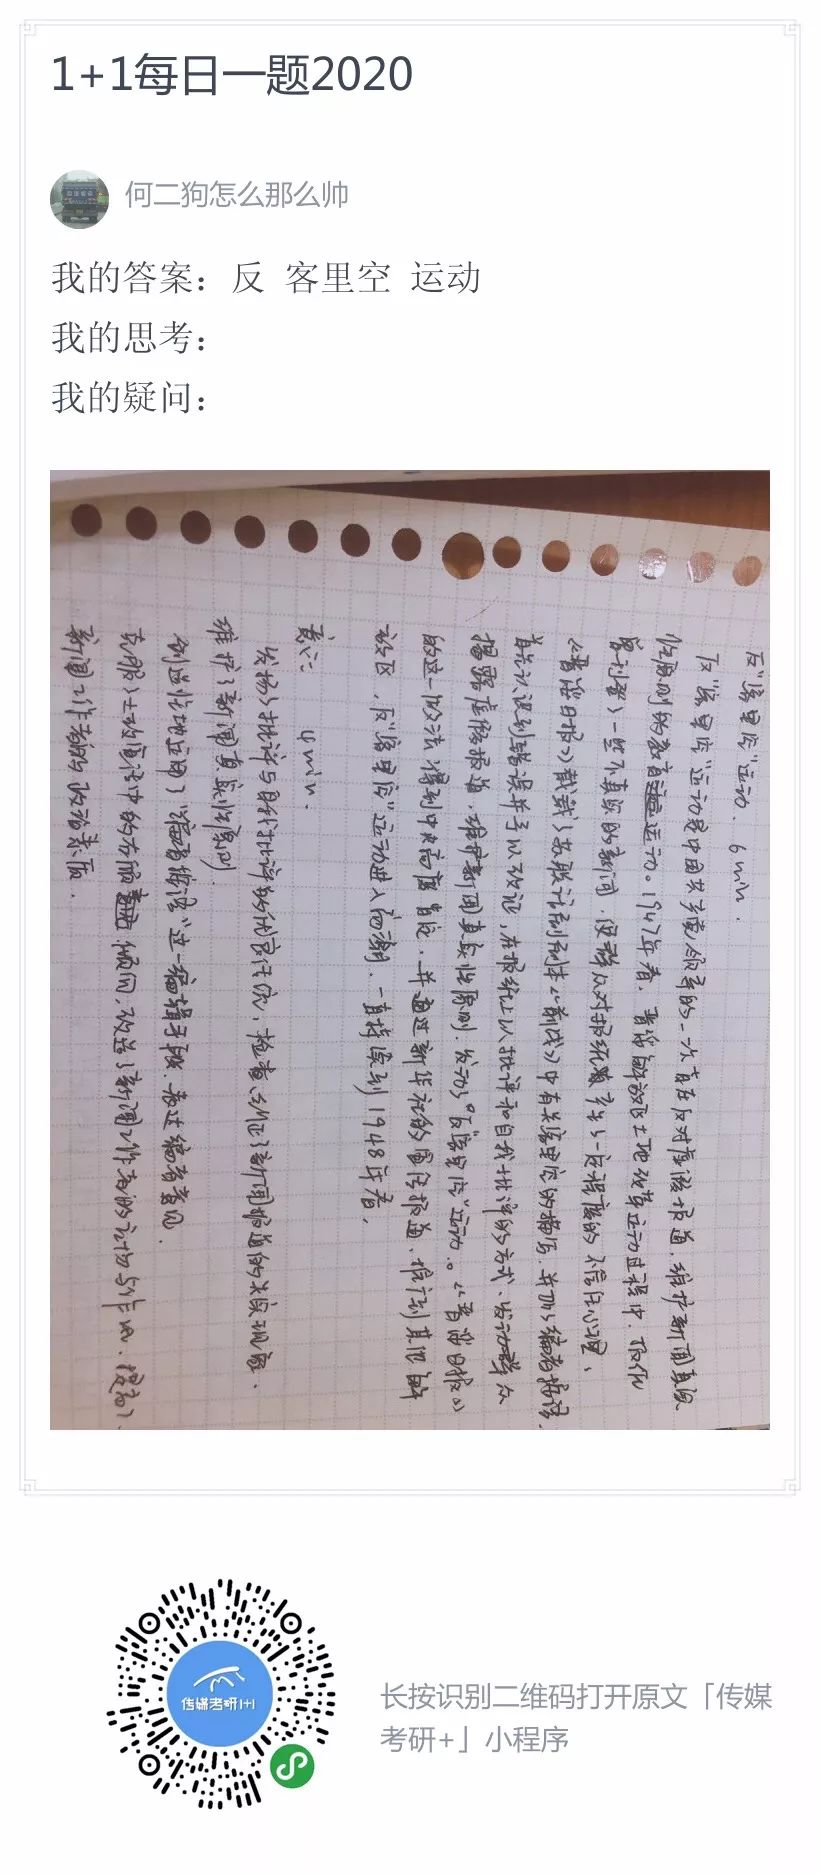 1+1每日一题2020
何二狗怎么那么帅
我的答案：反 客里空 运动
我的思考：
我的疑问：
反"客里空"运动. 6min.
反"客里空"运动是中国共产党领导的一次旨在反对虚假报道,维护新闻真实
性原则的教育运动。1947年春,晋绥解放区土地改革运动过程中,
一些不真实的新闻,使群众对报纸产生了一定程度的不信任心理,
《晋绥日报》载《前线》中有关客里空的,并加了编者按语,
认识到错误并予以改正,在报纸上以批评和自我批评的方式、发动群众
揭露虚假报道,维护新闻真实性原则,发动了"反客里空"运动。《晋绥日报》
的这一做法得到中央高度肯定,并通过新华社的宣传报道,推行到其他解
放区,反"客里空"运动进入高潮,一直持续到1948年春,
意义: 4min.
发扬了批评与自我批评的优良作风,检查纠正了新闻报道的失实现象.
维护了新闻真实性原则.
创造性地运用了"编者按语"这一编辑手段,表达编者意见.
克服了土改宣传中的右倾倾向,改进了新闻工作者的立场与作风,提高了
新闻工作者的政治素质.
传媒考研1+1
长按识别二维码打开原文「传媒
考研+」小程序